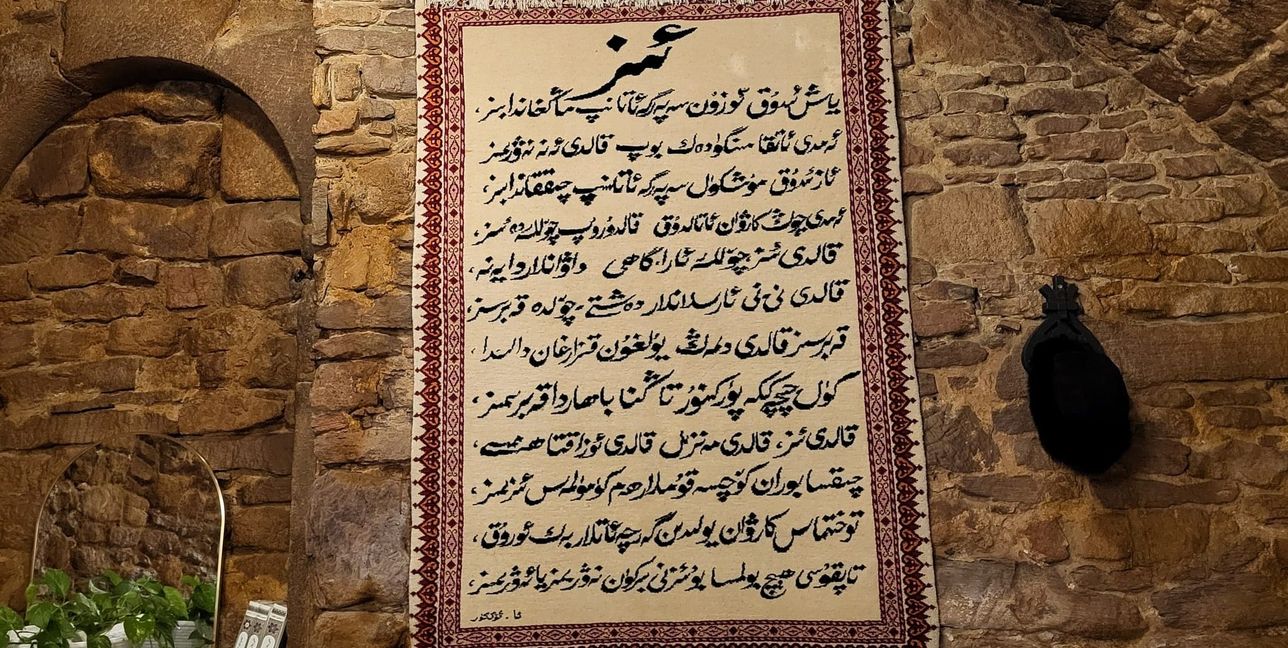 ئىز
ياش ئىدۇق ئۇزۇن سەپەرگە ئاتلىنىپ ماڭغاندا بىز،
ئەمدى ئاتقا مىنگۈدەك بوپ قالدى ئەنە نەۋرىمىز
ئاز ئىدۇق مۈشكۈل سەپەرگە ئاتلىنىپ چىققاندا بىز،
ئەمدى چوڭ كارۋان ئاتالدۇق قالدۇرۇپ چۆللەردە ئىز
قالدى ئىز چۆللەر ئارا گاھى داۋانلاردا يەنە،
قالدى نى نى ئارسلانلار دەشتى - چۆلدە قەبرىسىز
قەبرىسىز قالدى دېمەڭ يۇلغۇن قىزارغان دالىدا،
گۈل چېچەككە پۈركىنۇر تاڭنا باھاردا قەبرىمىز
قالدى ئىز، قالدى مەنزىل قالدى ئۇزاقتا ھەممىسى،
چىقسا بوران كۆچسە قۇملار ھەم كۆمۈلمەس ئىزىمىز
توختىماس كارۋان يولىدىن گەرچە ئاتلار بەك ئورۇق،
تاپقۇسى ھېچ بولمىسا بۇ ئىزنى بىركۈن نەۋرىمىز يا ئەۋرىمىز
ئا . ئۆتكۈر